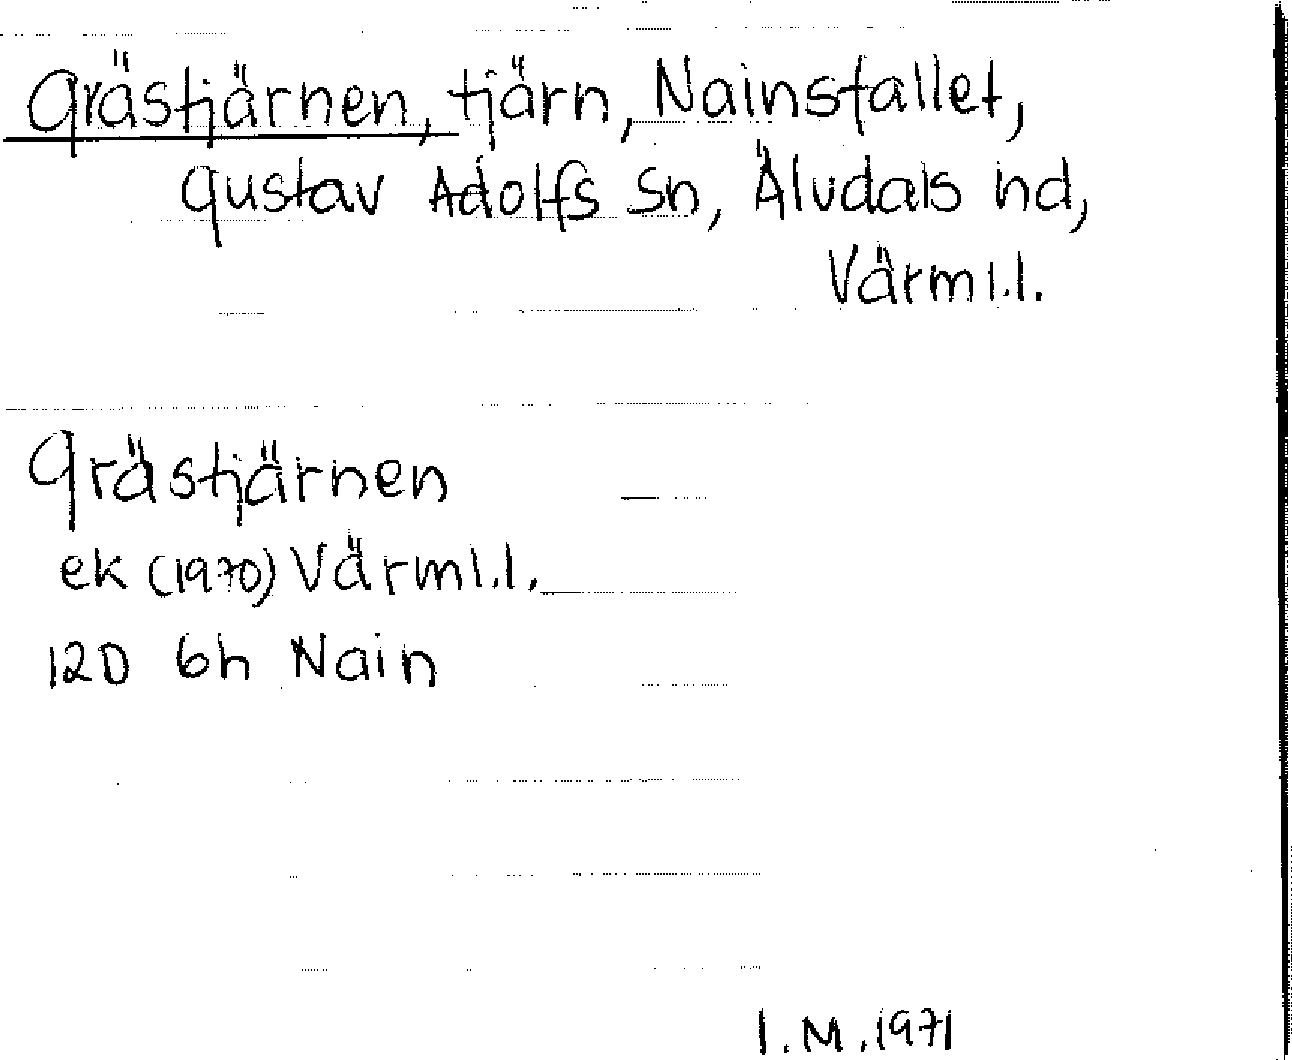 Grästjärnen, tjärn, Nainsfallet,
Gustav Adolfs sn, Älvdals hd,
Värml.l.
Grästjärnen
ek (1970) Värml.l.
12D 6h Nain
I.M.1971